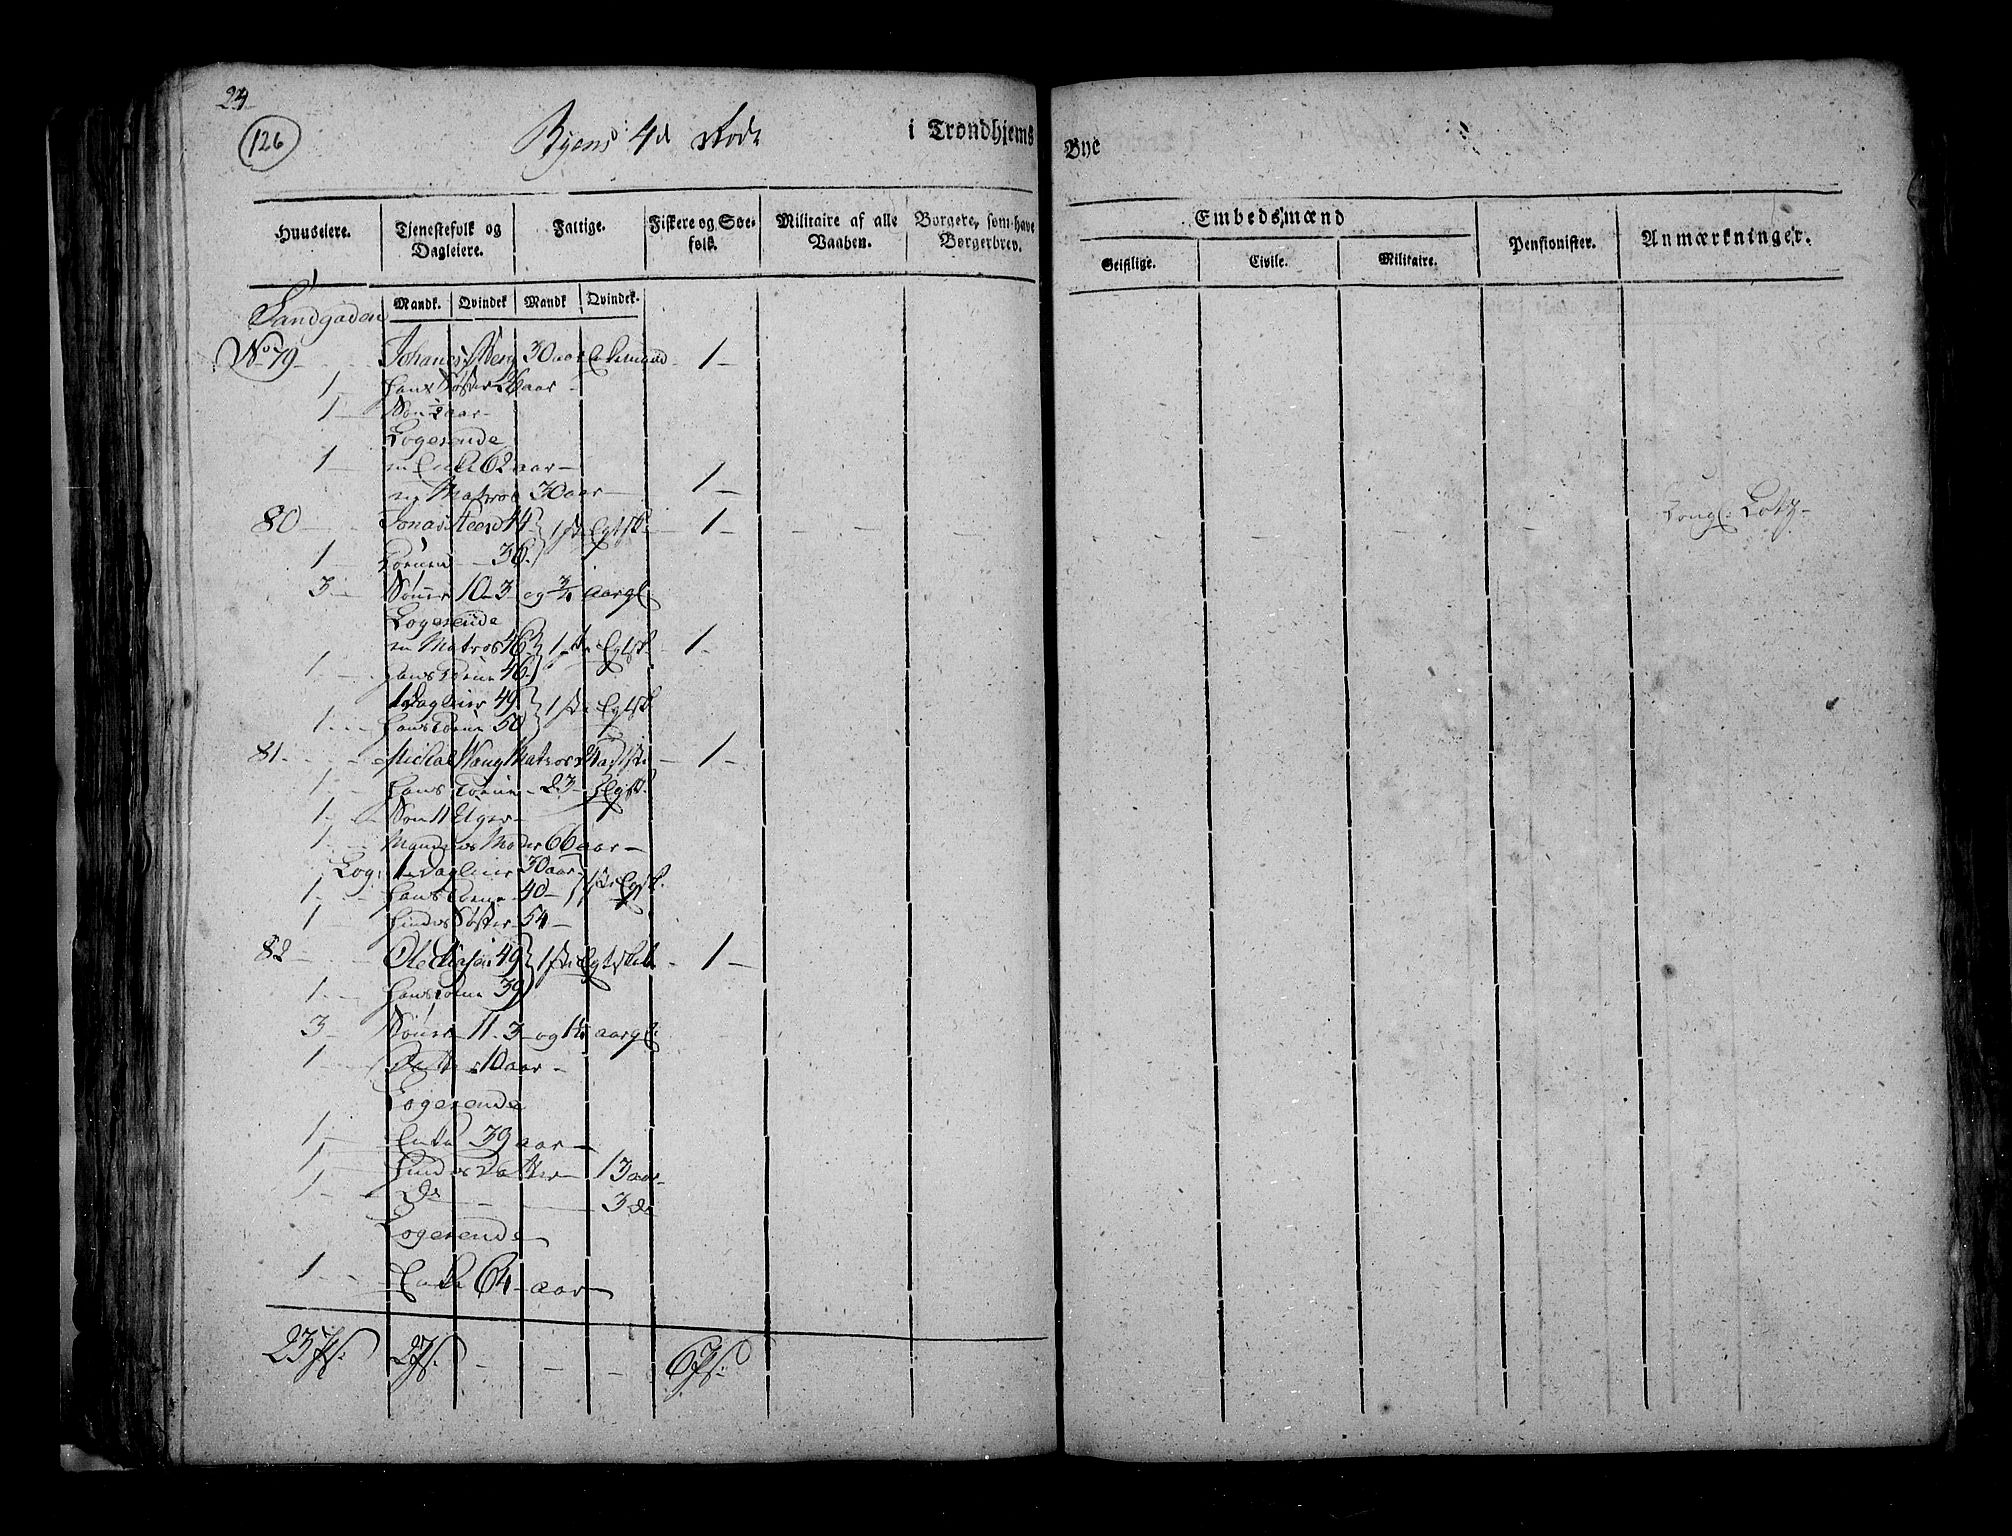 24
126
Byens 4de Rode i Trondhjems Bye
Huuseiere. Tjenestefolk og Dagleiere. Fattige. Fiskere og Søefolk. Militaire af alle Vaaben. Borgere, som have Borgerbrev. Embedsmænd Pensionister. Anmærkninger.
Geistlige. Civile. Militaire.
Sandgaden Mandk. Qvindek Mandk Qvindek.
No 79 Johanes Berg 30 aar Enkemand 1
1 hans Søster 26 aar
1 Søn 1/2 aar
Logerende
1 en Enke 62 aar
en Matros 30 aar 1
80 Jonas 44 1ste Egtsk. 1 Lotz
1 Konen 36
3 Sønner 10 3 og 3/4 aargl
Logerende
en Matros 46 1ste Egtsk. 1
1 hans Kone 46
1 Dagleier 49 1ste Egtsk
1 hans Kone 50
81 Michal Wang Matros 1ste 1
1 hans Kone 23 Egtsk.
1 Søn 11 Uger
1 Mandens Moder 66 aar
Log: 1 Dagleier 30 aar 1ste Egtsk.
1 hans Kone 40
1 hindes Søster 54
82 Ole 49 1ste Egtskab 1
1 hans Kone 39
3 Sønner 11 3 og aargl
1 Datter 10 aar
Logerende
1 Enke 39 aar
1 hindes Datter 13 aar
1 Do 3 do
Logerende
1 Enke 64 aar
23 Ps. 2 Ps. 6 Ps.